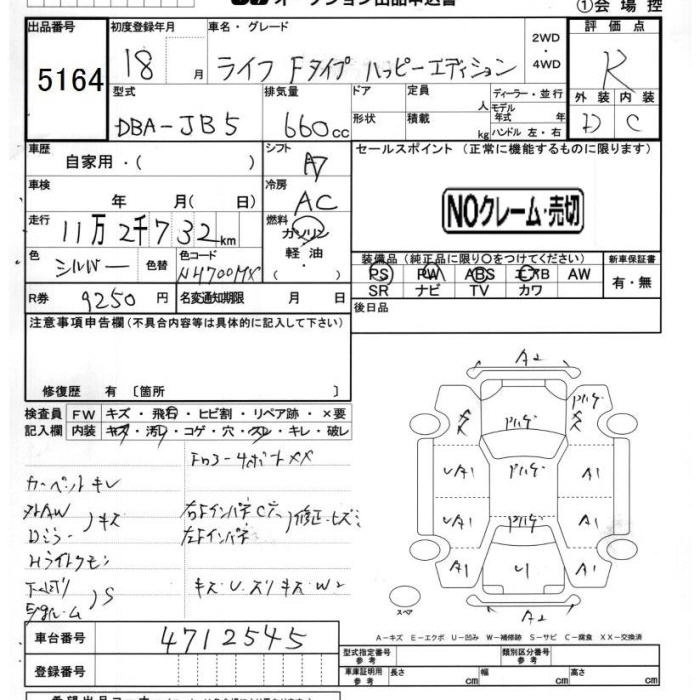 オークション出品申込書
①会場控
出品番号 5164
初度登録年月 18 月
車名・グレード ライフ Fタイプ ハッピーエディション
2WD・4WD
評価点 R
型式 DBA-JB5
排気量 660cc
ドア 形状
定員 人
積載 kg
ディーラー・並行
モデル年式 年
ハンドル 左・右
外装 D
内装 C
車歴 自家用・( )
シフト A7
セールスポイント(正常に機能するものに限ります)
車検 年 月( 日)
冷房 AC
NOクレーム・売切
走行 11万2千732km
燃料 ガソリン 軽油・( )
色 シルバー 色替
色コード NH700MX
装備品(純正品に限り○をつけてください)
PS PW ABS エアB AW
SR ナビ TV カワ
新車保証書 有・無
R券 9250円
名変通知期限 月 日
後日品
注意事項申告欄(不具合内容等は具体的に記入して下さい)
修復歴 有〔箇所 〕
検査員記入欄
FW キズ・飛石・ヒビ割・リペア跡・×要
内装 キズ・汚レ・コゲ・穴・スレ・キレ・破レ
カーペットキレ
キズ
Dミラー
Hライトクモリ
S
右よインパネ
左よインパネ
修正・ヒズミ
キズ・U・ズリキズ・W2
A2
A1
UA1
A1
UA1
A1
A1
A1
U1
A2
スペア
A-キズ E-エクボ U-凹み W-補修跡 S-サビ C-腐食 XX-交換済
車台番号 4712545
登録番号
型式指定番号 参考
類別区分番号 参考
車庫証明用 参考 長さ cm 幅 cm 高さ cm